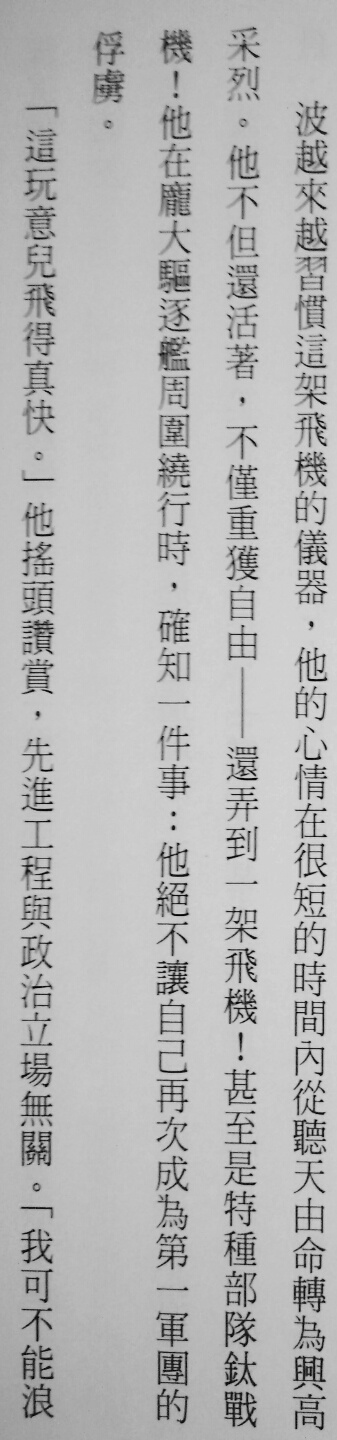 波越來越習慣這架飛機的儀器，他的心情在很短的時間內從聽天由命轉為興高
采烈。他不但還活著，不僅重獲自由——還弄到一架飛機！甚至是特種部隊鈦戰
機！他在龐大驅逐艦周圍繞行時，確知一件事：他絕不讓自己再次成為第一軍團的
俘虜。
「這玩意兒飛得真快。」他搖頭讚賞，先進工程與政治立場無關。「我可不能浪